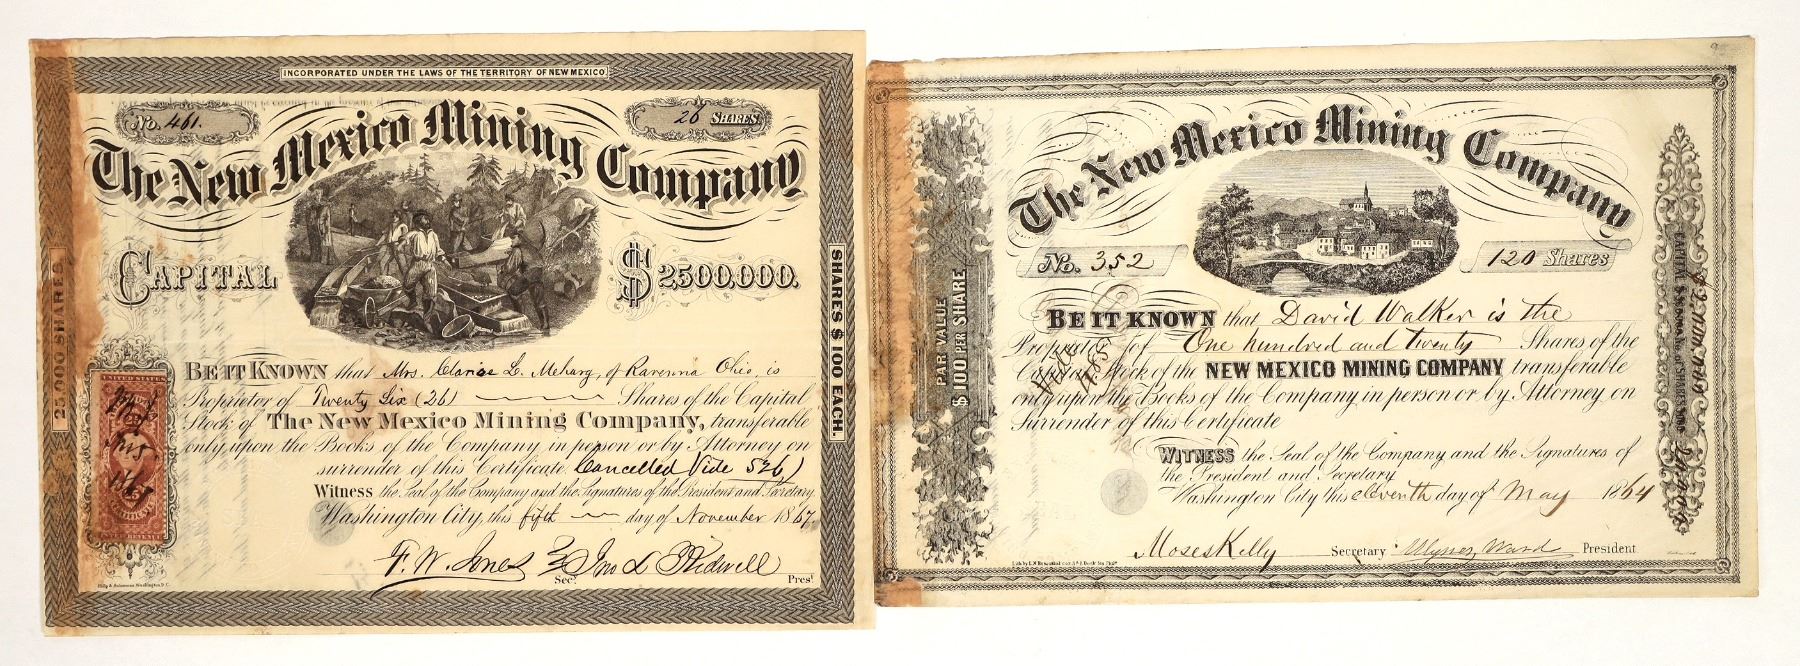 INCORPORATED UNDER THE LAWS OF THE TERRITORY OF NEW MEXICO.
No. 461.
26 SHARES
The New Mexico Mining Company
CAPITAL $2500,000.
25,000 SHARES
SHARES $100 EACH.
BE IT KNOWN that Mrs. L. Meharg, of Ravenna Ohio, is
Proprietor of Twenty Six (26) Shares of the Capital
Stock of The New Mexico Mining Company, transferable
only upon the Books of the Company in person or by Attorney on
surrender of this Certificate. Cancelled Vide 526)
Witness the Seal of the Company and the Signatures of the President and Secretary
Washington City, this fifth day of November 1867.
F. W. Jones Jno L Kidwell
Sec. Pres.
UNITED STATES
Philp & Solomons Washington, D.C.
The New Mexico Mining Company
No. 352
120 Shares
PAR VALUE
$100 PER SHARE
BE IT KNOWN that David Walker is the
Proprietor of One hundred and twenty Shares of the
Capital Stock of the NEW MEXICO MINING COMPANY transferable
only upon the Books of the Company in person or by Attorney on
Surrender of this Certificate
Vide 485
WITNESS the Seal of the Company and the Signatures of
the President and Secretary
Washington City this eleventh day of May 1864
Moses Kelly Secretary Ulysses Ward President
CAPITAL